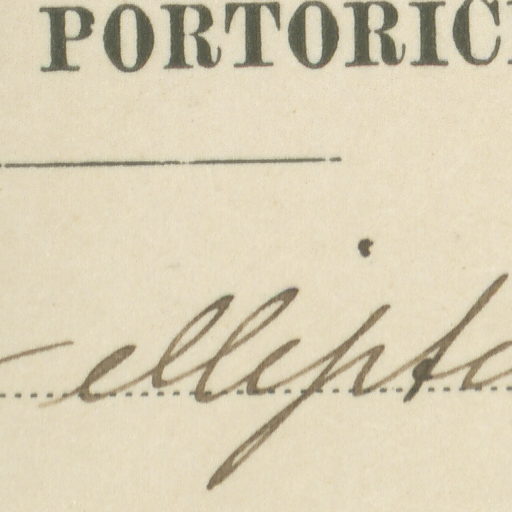 PORTORIC
ellipt